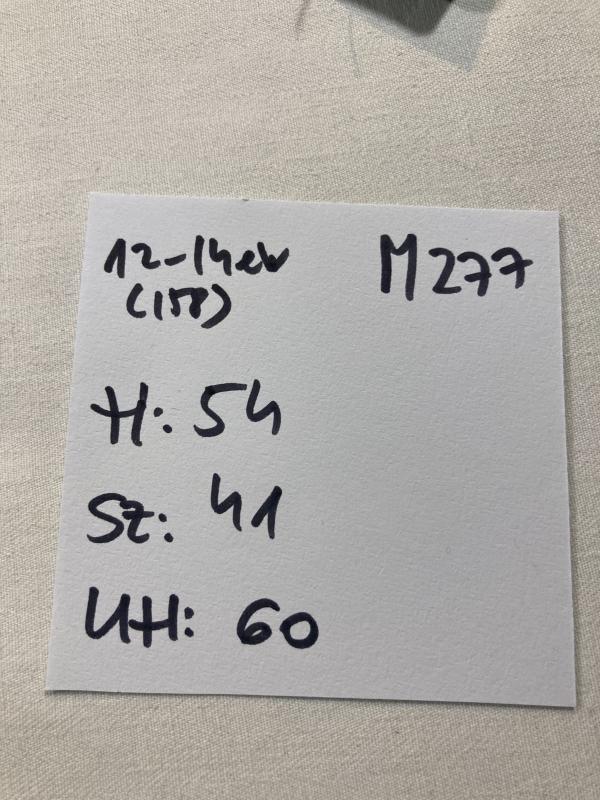 12-14 év M277
(158)
H: 54
Sz: 41
UH: 60